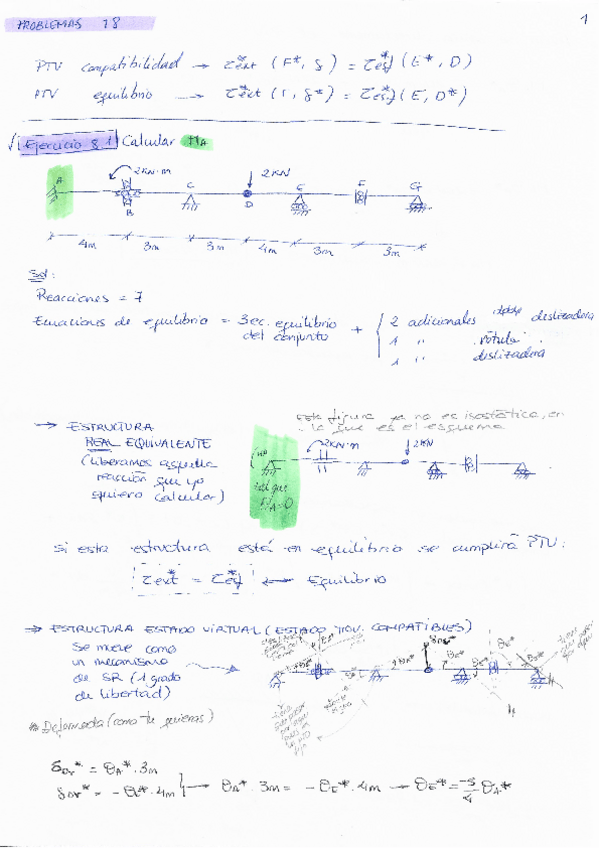 PROBLEMAS T8
1
PTV compatibilidad → τ*ext (F*, δ) = τ*def (E*, D)
PTV equilibrio → τ*ext (F, δ*) = τ*def (E, D*)
√ Ejercicio 8.1 Calcular MA
A 2KN·m B C 2KN D E F G
4m 3m 3m 4m 3m 3m
Sol:
Reacciones = 7
Ecuaciones de equilibrio = 3 ec. equilibrio del conjunto + { 2 adicionales doble deslizadera
1 " rótula
1 " deslizadera
→ ESTRUCTURA
REAL EQUIVALENTE
(liberamos aquella
reacción que yo
quiero calcular)
esta figura ya no es isostática, en
la que es el esquema
2KN·m 2KN
tal que
MA=0
Si esta estructura está en equilibrio se cumplirá PTV:
τ*ext = τ*def ← Equilibrio
⇒ ESTRUCTURA ESTADO VIRTUAL (ESTADO MOV. COMPATIBLES)
Se mueve como
un mecanismo
de SR (1 grado
de libertad)
* Deformada (como tu quieras)
δDv* = θA* · 3m
δDv* = -θE* · 4m } → θA* · 3m = -θE* · 4m → θE* = -3/4 θA*